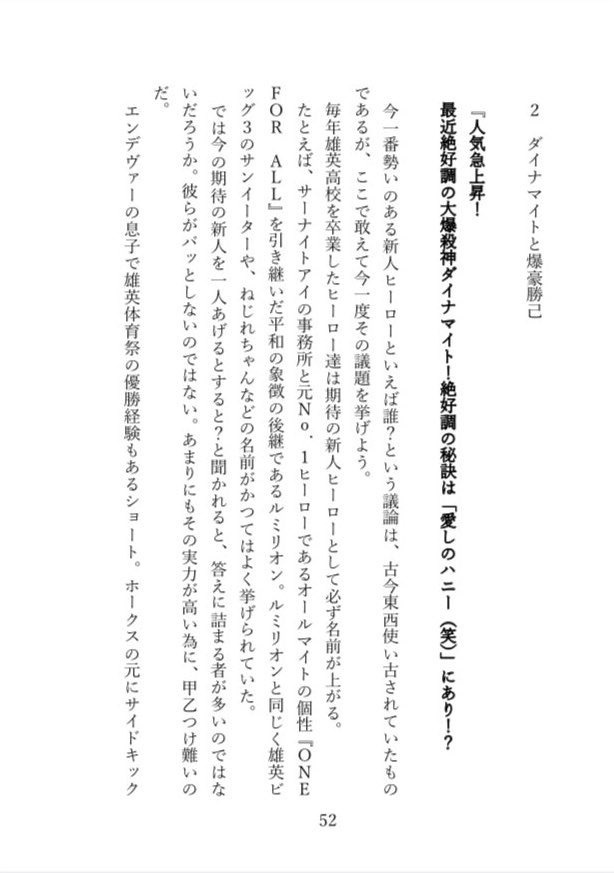 2　ダイナマイトと爆豪勝己
『人気急上昇！
最近絶好調の大爆殺神ダイナマイト！絶好調の秘訣は「愛しのハニー（笑）」にあり！？
今一番勢いのある新人ヒーローといえば誰？という議論は、古今東西使い古されていたもの
であるが、ここで敢えて今一度その議題を挙げよう。
毎年雄英高校を卒業したヒーロー達は期待の新人ヒーローとして必ず名前が上がる。
たとえば、サーナイトアイの事務所と元No.1ヒーローであるオールマイトの個性『ONE
FOR ALL』を引き継いだ平和の象徴の後継であるルミリオン。ルミリオンと同じく雄英ビ
ッグ3のサンイーターや、ねじれちゃんなどの名前がかつてはよく挙げられていた。
では今の期待の新人を一人あげるとすると？と聞かれると、答えに詰まる者が多いのではな
いだろうか。彼らがパッとしないのではない。あまりにもその実力が高い為に、甲乙つけ難いの
だ。
エンデヴァーの息子で雄英体育祭の優勝経験もあるショート。ホークスの元にサイドキック
52